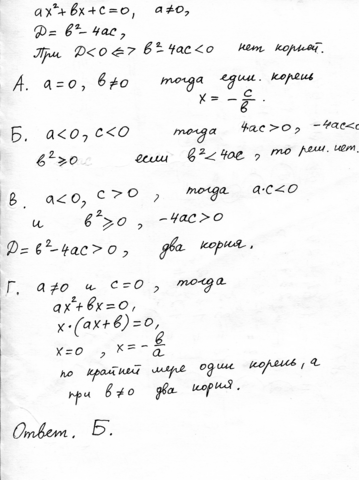 ax²+bx+c=0, a≠0,
D= b²-4ac,
При D<0 <=> b²-4ac<0 нет корней.
А. a=0, b≠0 тогда един. корень
x = - c/b .
Б. a<0, c<0 тогда 4ac>0, -4ac<0
b²⩾0 если b²<4ac, то реш. нет.
В. a<0, c>0, тогда a·c<0
и b²⩾0, -4ac>0
D=b²-4ac>0, два корня.
Г. a≠0 и c=0, тогда
ax²+bx=0,
x·(ax+b)=0,
x=0 , x=- b/a
по крайней мере один корень, а
при b≠0 два корня.
Ответ. Б.